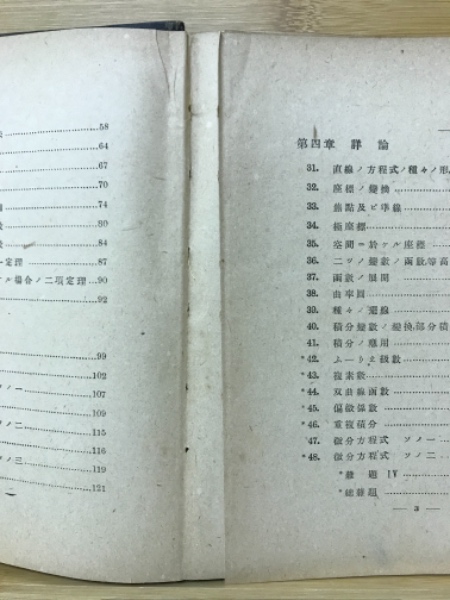 58
64
67
70
74
80
84
定理 87
ル場合ノ二項定理 90
92
99
102
ノ一
105
109
ノ二
115
116
ノ三
119
121
第四章 詳論
31. 直線ノ方程式ノ種々ノ形
32. 座標ノ變換
33. 焦點及ビ準線
34. 極座標
35. 空間ニ於ケル座標
36. 二ツノ變數ノ函數,等高
37. 函數ノ展開
38. 曲率圓
39. 種々ノ
40. 積分變數ノ變換,部分積
41. 積分ノ應用
*42. ふーりえ級數
*43. 複素數
*44. 双曲線函數
*45. 偏微係數
*46. 重複積分
47. 微分方程式 ソノ一
*48. 微分方程式 ソノ二
*雜題 IV
*總雜題
— 3 —